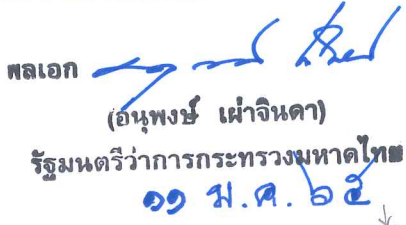 พลเอก
(อนุพงษ์ เผ่าจินดา)
รัฐมนตรีว่าการกระทรวงมหาดไทย
๑๑ ม.ค. ๖๕